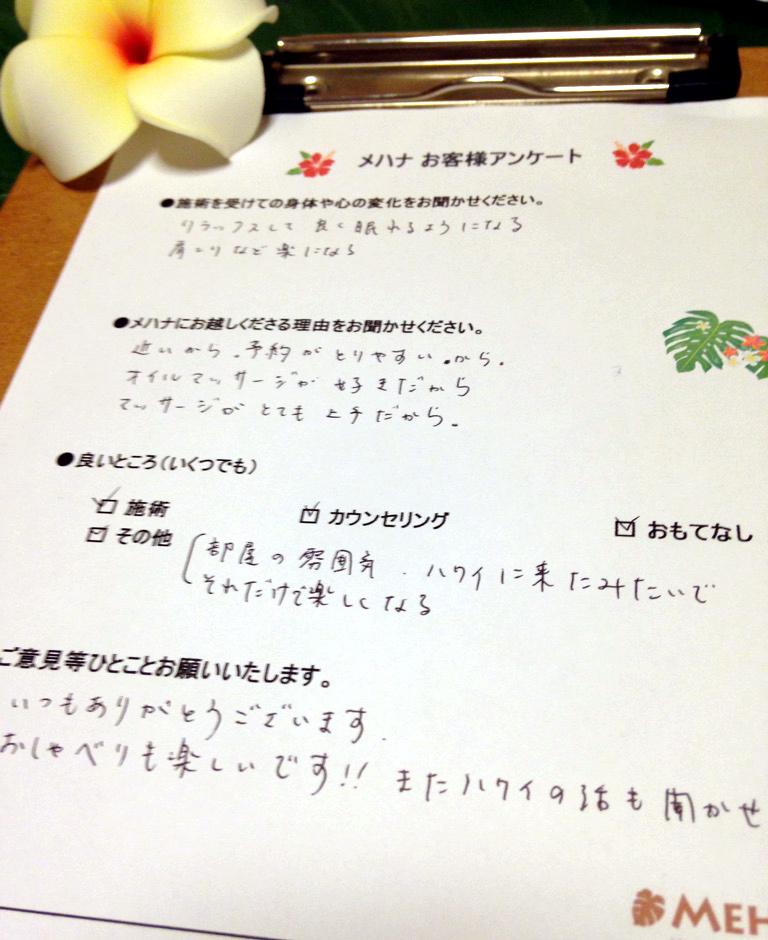 メハナ お客様アンケート
●施術を受けての身体や心の変化をお聞かせください。
リラックスして 良く眠れるようになる
肩こりなど楽になる
●メハナにお越しくださる理由をお聞かせください。
近いから、予約がとりやすい、から。
オイルマッサージが 好きだから
マッサージが とても 上手だから。
●良いところ（いくつでも）
☑ 施術 ☑ カウンセリング ☑ おもてなし
☑ その他 部屋の雰囲気、ハワイに来たみたいで
それだけで楽しくなる
ご意見等ひとことお願いいたします。
いつもありがとうございます.
おしゃべりも楽しいです!! またハワイの話も聞かせ
MEH